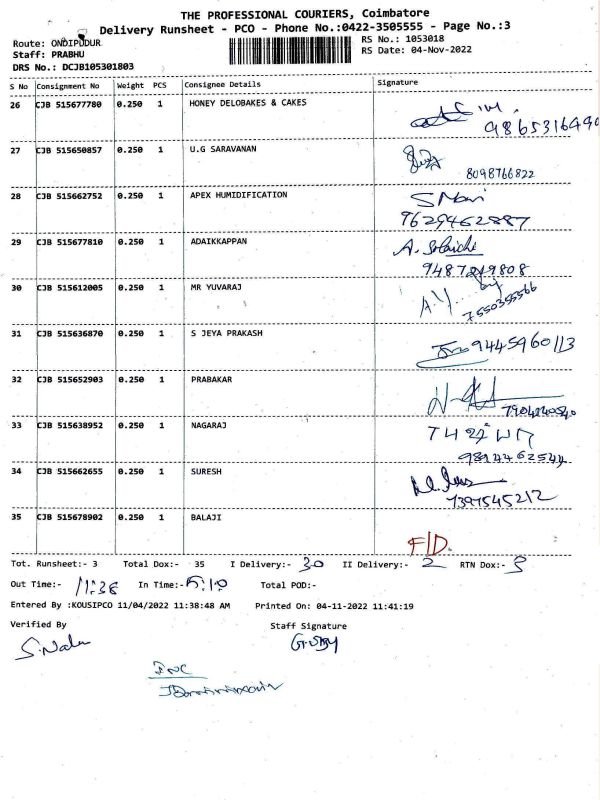 THE PROFESSIONAL COURIERS, Coimbatore
Delivery Runsheet - PCO - Phone No.:0422-3505555 - Page No.:3
Route: ONDIPUDUR
RS No.: 1053018
Staff: PRABHU
RS Date: 04-Nov-2022
DRS No.: DCJB105301803
S No Consignment No Weight PCS Consignee Details Signature
26 CJB 515677780 0.250 1 HONEY DELOBAKES & CAKES
27 CJB 515650857 0.250 1 U.G SARAVANAN
8098766822
28 CJB 515662752 0.250 1 APEX HUMIDIFICATION
9629462887
29 CJB 515677810 0.250 1 ADAIKKAPPAN
30 CJB 515612005 0.250 1 MR YUVARAJ
7550355566
31 CJB 515636870 0.250 1 S JEYA PRAKASH
9445960113
32 CJB 515652903 0.250 1 PRABAKAR
33 CJB 515638952 0.250 1 NAGARAJ
34 CJB 515662655 0.250 1 SURESH
7397545212
35 CJB 515678902 0.250 1 BALAJI
F/D.
Tot. Runsheet:- 3 Total Dox:- 35 I Delivery:- 30 II Delivery:- 2 RTN Dox:- 3
Out Time:- 11:38 In Time:- Total POD:-
Entered By :KOUSIPCO 11/04/2022 11:38:48 AM Printed On: 04-11-2022 11:41:19
Verified By Staff Signature